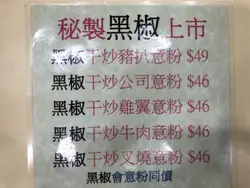 秘製黑椒上市
黑椒干炒豬扒意粉 $49
黑椒干炒公司意粉 $46
黑椒干炒雞翼意粉 $46
黑椒干炒牛肉意粉 $46
黑椒干炒叉燒意粉 $46
黑椒會意粉同價